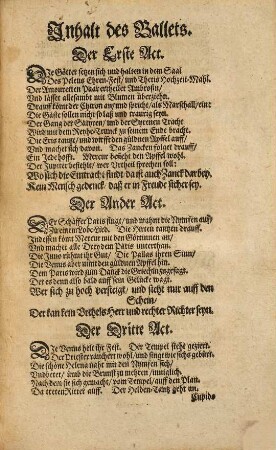 Inhalt des Ballets.
Der Erste Act.
Die Götter setzen sich und halten in dem Saal
Des Peleus Ehren-Fest/ und Theris Hochzeit-Mahl.
Der Amouretten Paar ertheilet Ambrosin/
Und lässet allesambt mit Blumen überziehn.
Drauff könt der Charon an/ und spricht/ als Marschall/ eint
Die Gäste sollen nicht so laß und traurig seyn.
Der Gang der Satyren/ und der Sirenen Tracht
Wird mit dem Nephe-Trunck zu seinem Ende bracht.
Die Eris tantzt/ und wirfft den güldnen Apffel auff/
Und machet sich davon. Das Zancken folget drauff/
Ein Jede hofft. Mercur behelt den Apffel wohl.
Der Jupiter bestehlet/ wer Urtheil sprechen soll:
Wo sich die Eintracht findt da ist auch Zanck darbey.
Kein Mensch gedenck daß er in Freude sicher sey.
Der Ander Act.
Der Schäffer Paris singt/ und mahnt die Nymfen auff/
Zu einem Lobe-Lied. Die Hirten tantzen drauff.
Indessen könt Mercur mit den Göttinnen an/
Und machet alle Drey dem Paris unterthan.
Die Juno rühmt ihr Gut; Die Pallas ihren Sinn/
Die Venus aber nimt den güldnen Apffel hin.
Dem Paris wird zum Danck die Griechin zugesagt.
Der es denn also bald auff sein Gelücke wagt.
Wer sich zu hoch versteigt, und sieht nur auff den
Schein/
Der kan kein Urthels Herr und rechter Richter seyn.
Der Dritte Act.
Die Venus helt ihr Fest. Der Tempel steht geziert.
Der Priester räuchert wohl/ und singt wie sichs gebürt.
Die schöne Helena naht mit den Nymfen sich/
Und betet/ ümb die Brunst zu mehren/ inniglich.
Nach dem sie sich gemacht/ vom Tempel/ auff den Plan.
Da treten Ritter auff. Der Helden-Tantz geht an.
Cupido